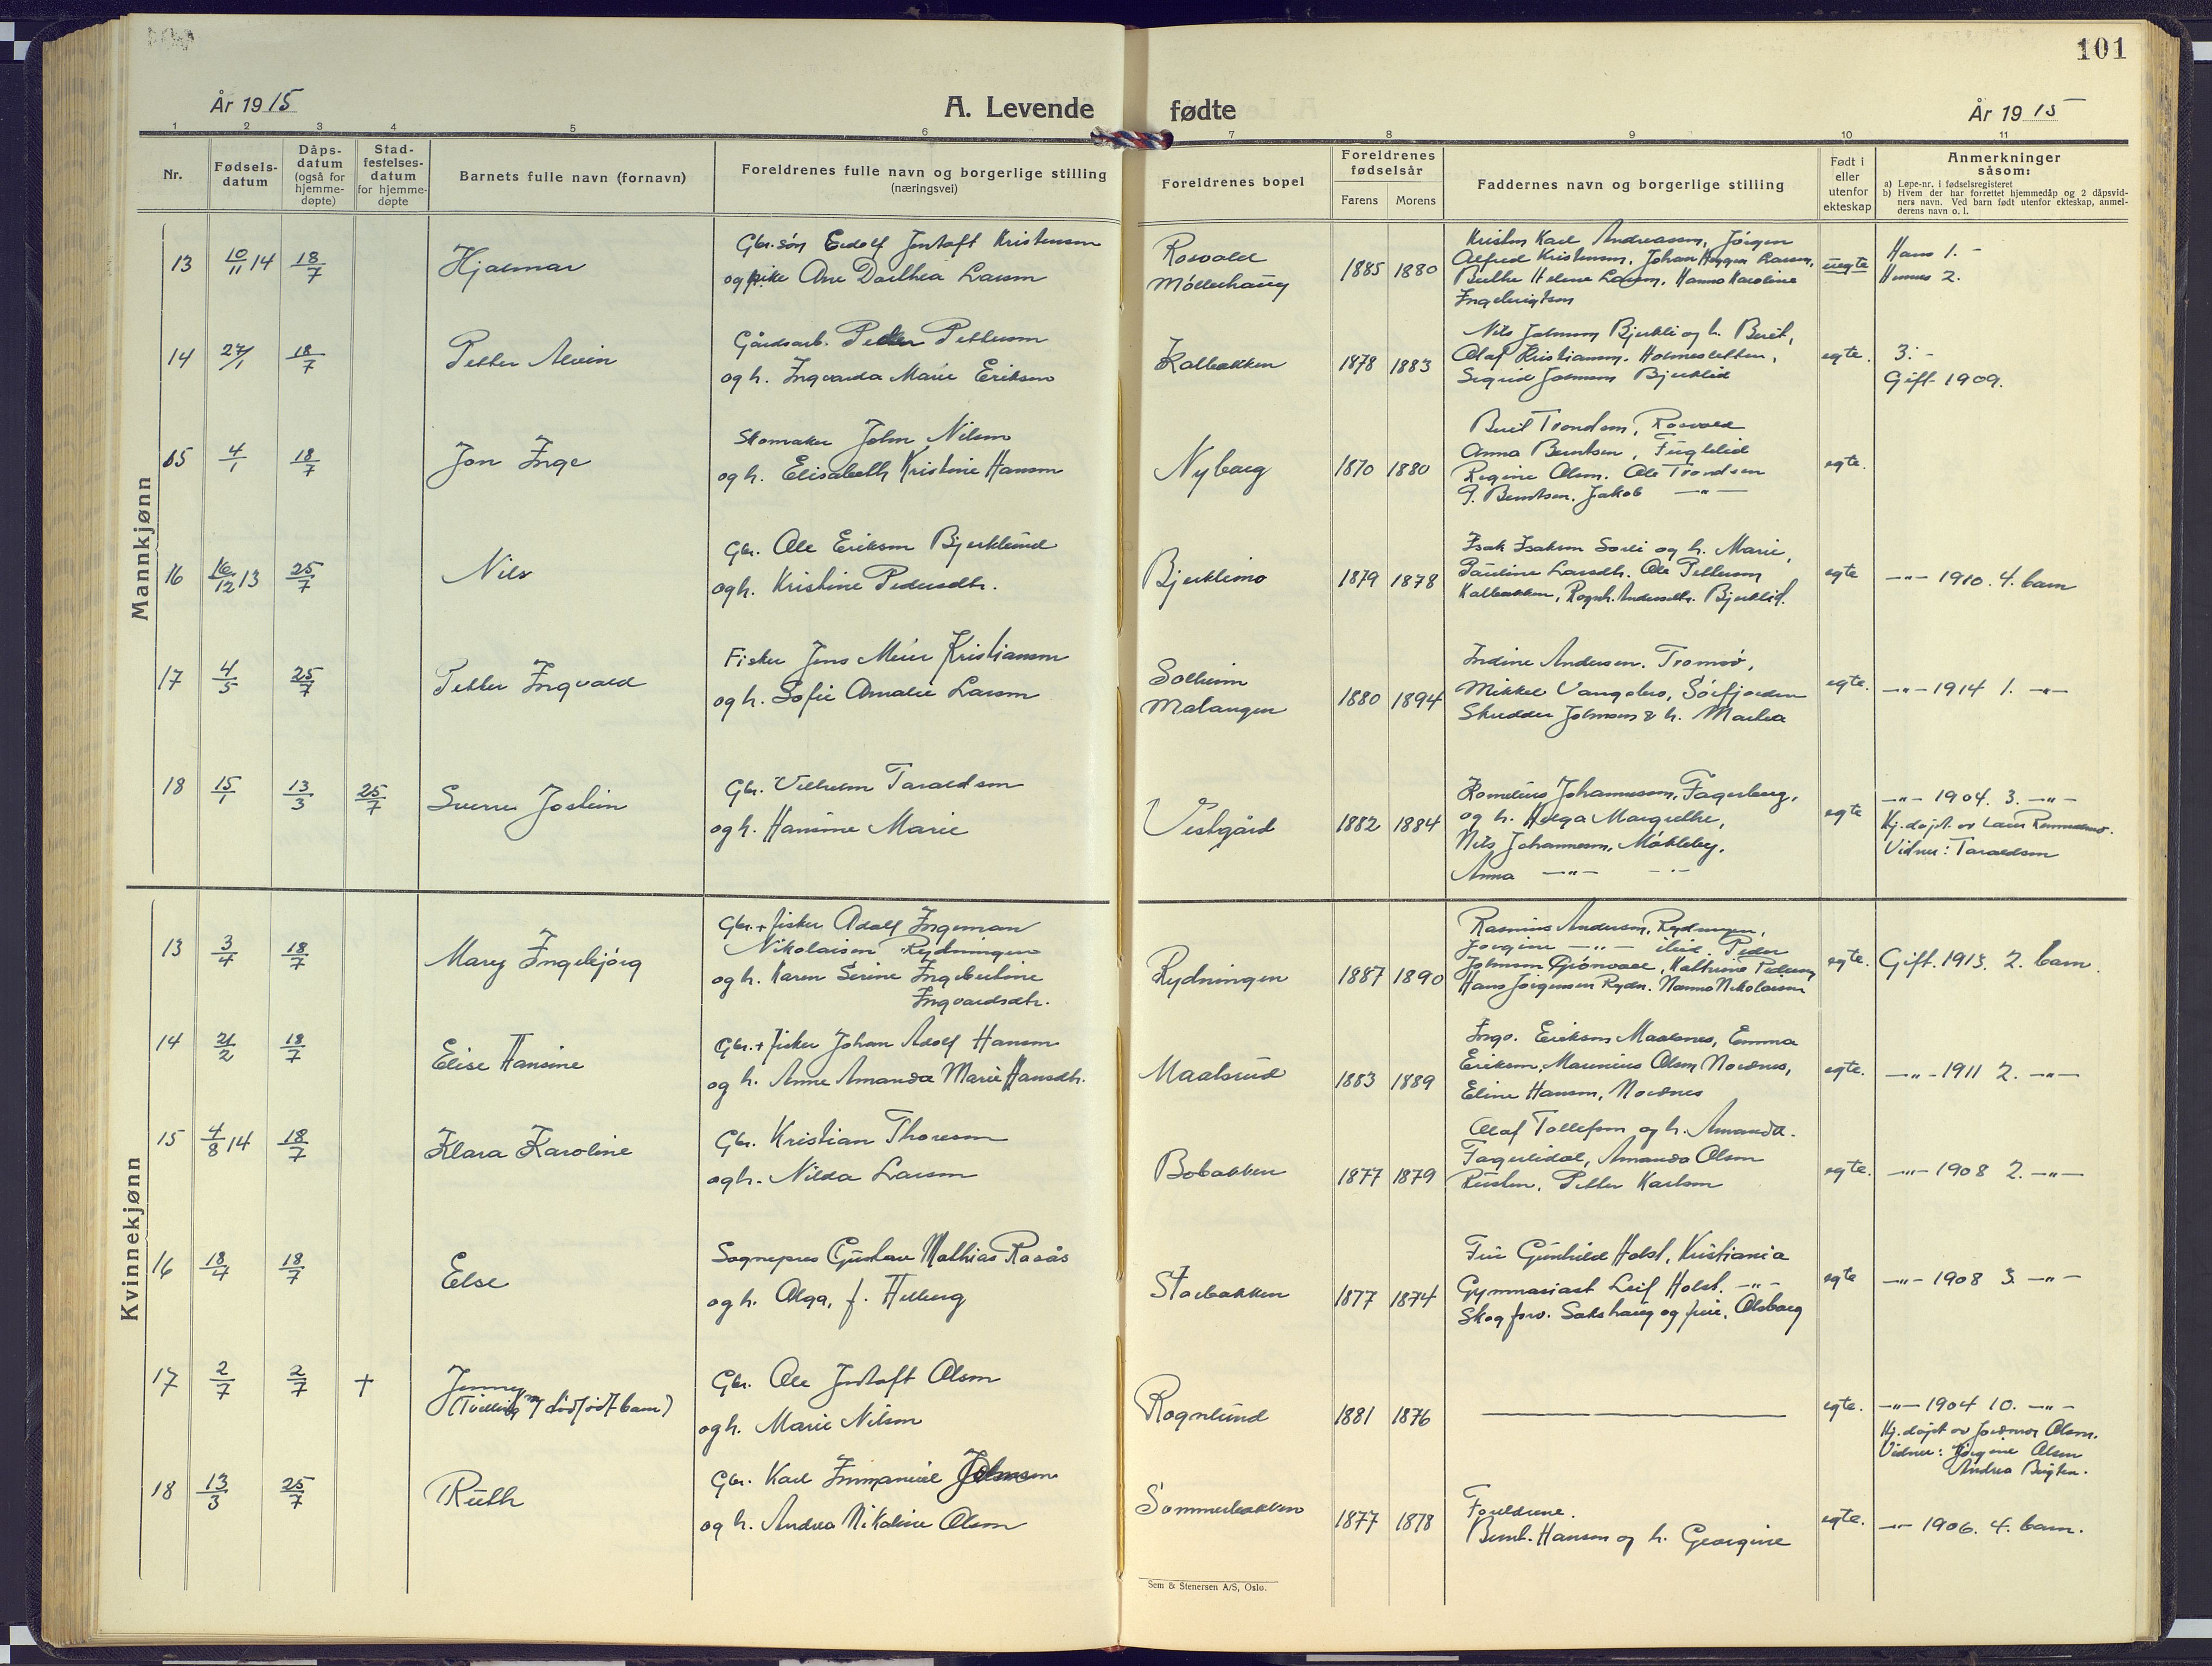 101
År 1915
A. Levende fødte
År 1915
1 2 3 4 5 6 7 8 9 10 11
Nr.
Fødsels-
datum
Dåps-
datum
(også for
hjemme-
døpte)
Stad-
festelses-
datum
for hjemme-
døpte
Barnets fulle navn (fornavn)
Foreldrenes fulle navn og borgerlige stilling
(næringsvei)
Foreldrenes bopel
Foreldrenes
fødselsår
Farens Morens
Faddernes navn og borgerlige stilling
Født i
eller
utenfor
ekteskap
Anmerkninger
såsom:
a) Løpe-nr. i fødselsregisteret
b) Hvem der har forrettet hjemmedåp og 2 dåpsvid-
ners navn. Ved barn født utenfor ekteskap, anmel-
derens navn o. l.
Mannkjønn
13 10/11 14 18/7 Hjalmar
Gbr. søn Jentoft Kristensen
og pike Ane Dorthea Larsen
Rosvold
Møllerhaug
1885 1880
Kristen Karl Andreassen, Jørgen
Alfred Kristensen, Johan Larsen,
Helene Larsen, Hanna Karoline
Ingebrigtsen
uegte
Hans 1. -
Hennes 2.
14 27/1 18/7 Petter Alvin
Gårdsarb. Peder Pettersen
og h. Ingvarda Marie Eriksen
Kalbakken
1878 1883
Nils Johnsen Bjerkli og h. Berit,
Olaf Kristiansen, Holmesletten,
Sigrid Johnsen Bjerklid
egte.
3. -
Gift 1909.
15 4/1 18/7 Jon Inge
Skomaker John Nilsen
og h. Elisabeth Kristine Hansen
Nyborg
1870 1880
Berit Trondsen, Rosvold
Anna Berntsen, Fuglelid
Regine Olsen. Ole Trondsen
P. Berntsen. Jakob —"—
egte.
16 16/12 13 25/7 Nils
Gbr. Ole Eriksen Bjerklund
og h. Kristine Pedersdtr.
Bjerklimo
1879 1878
Isak Isaksen Sørli og h. Marie,
Pauline Larsdtr. Ole Pettersen
Kalbakken, Ragnh. Andersdtr. Bjerklid.
egte
—"— 1910. 4. barn
17 4/5 25/7 Petter Ingvald
Fisker Jens Meier Kristiansen
og h. Sofie Amalie Larsen
Solheim
Malangen
1880 1894
Indine Andersen. Tromsø,
Mikkel Vangebro, Sørfjorden
Skredder Johnsen & h. Martha
egte.
—"— 1914 1. —"—
18 15/1 13/3 25/7 Sverre Jostein
Gbr. Vilhelm Taraldsen
og h. Hansine Marie
Vestgård
1882 1884
Kornelius Johannessen, Fagerberg,
og h. Helga Margrethe,
Nils Johannesen, Møkleby,
Anna —"— —"—
egte
—"— 1904. 3. —"—
Hj. døpt av Lars
Vidner: Taraldsen
Kvinnekjønn
13 3/4 18/7 Mary Ingebjørg
Gbr. + fisker Adolf Ingeman
Nikolaisen Rydningen
og h. Karen Serine Ingebertine
Ingvardsdtr.
Rydningen
1887 1890
Rasmus Andersen, Rydningen,
Jørgine —"— ibid. Peder
Johnsen Grönvold, Kathrine Pedersen
Hans Jørgensen Rydn. Nanna Nikolaisen
egte.
Gift. 1913. 2. barn.
14 21/2 18/7 Elise Hansine
Gbr. + fisker Johan Adolf Hansen
og h. Anne Amanda Marie Hansdtr.
Maalsund
1883 1889
Ingv. Eriksen Maalsnes, Emma
Eriksen, Marinius Olsen Nordnes,
Eline Hansen, Nordnes
egte.
—"— 1911 2. —"—
15 4/8 14 18/7 Klara Karoline
Gbr. Kristian Thoresen
og h. Nilda Larsen
Bobakken
1877 1879
Olaf Tollefsen og h. Amanda.
Fagerlidal, Amanda Olsen
Rusten, Petter Karlsen
egte.
—"— 1908 2. —"—
16 18/4 18/7 Else
Sogneprest Gustav Mathias Raaås
og h. Olga, f. Hilberg
Storbakken
1877 1874
Fru Gunhild Holst, Kristiania
Gymnasiast Leif Holst. —"—
Skogforv. Sakshaug og frue, Olsborg
egte
—"— 1908 3. —"—
17 2/7 2/7 † Jenny
(Tvilling m/ dødfødt barn)
Gbr. Ole Jentoft Olsen
og h. Marie Nilsen
Rognlund
1881 1876
egte.
—"— 1904 10. —"—
Hj. døpt av Jordmor Olsen.
Vidner: Jørgine Olsen
Andrea
18 13/3 25/7 Ruth
Gbr. Karl Immanuel Johnsen
og h. Andrea Nikoline Olsen
Sommerbakken
1877 1878
Foreldrene.
Bernt. Hansen og h. Georgine
egte.
—"— 1906. 4. barn.
Sem & Stenersen A/S, Oslo.